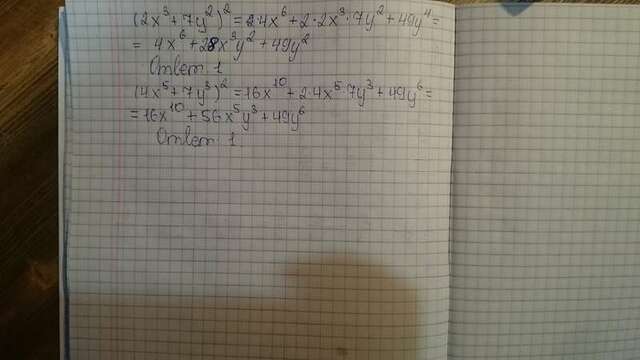 (2x³+7y²)²=2·4x⁶+2·2x³·7y²+49y⁴=
= 4x⁶+28x³y²+49y²
Ответ: 1
(4x⁵+7y³)²=16x¹⁰+2·4x⁵·7y³+49y⁶=
=16x¹⁰+56x⁵y³+49y⁶
Ответ: 1